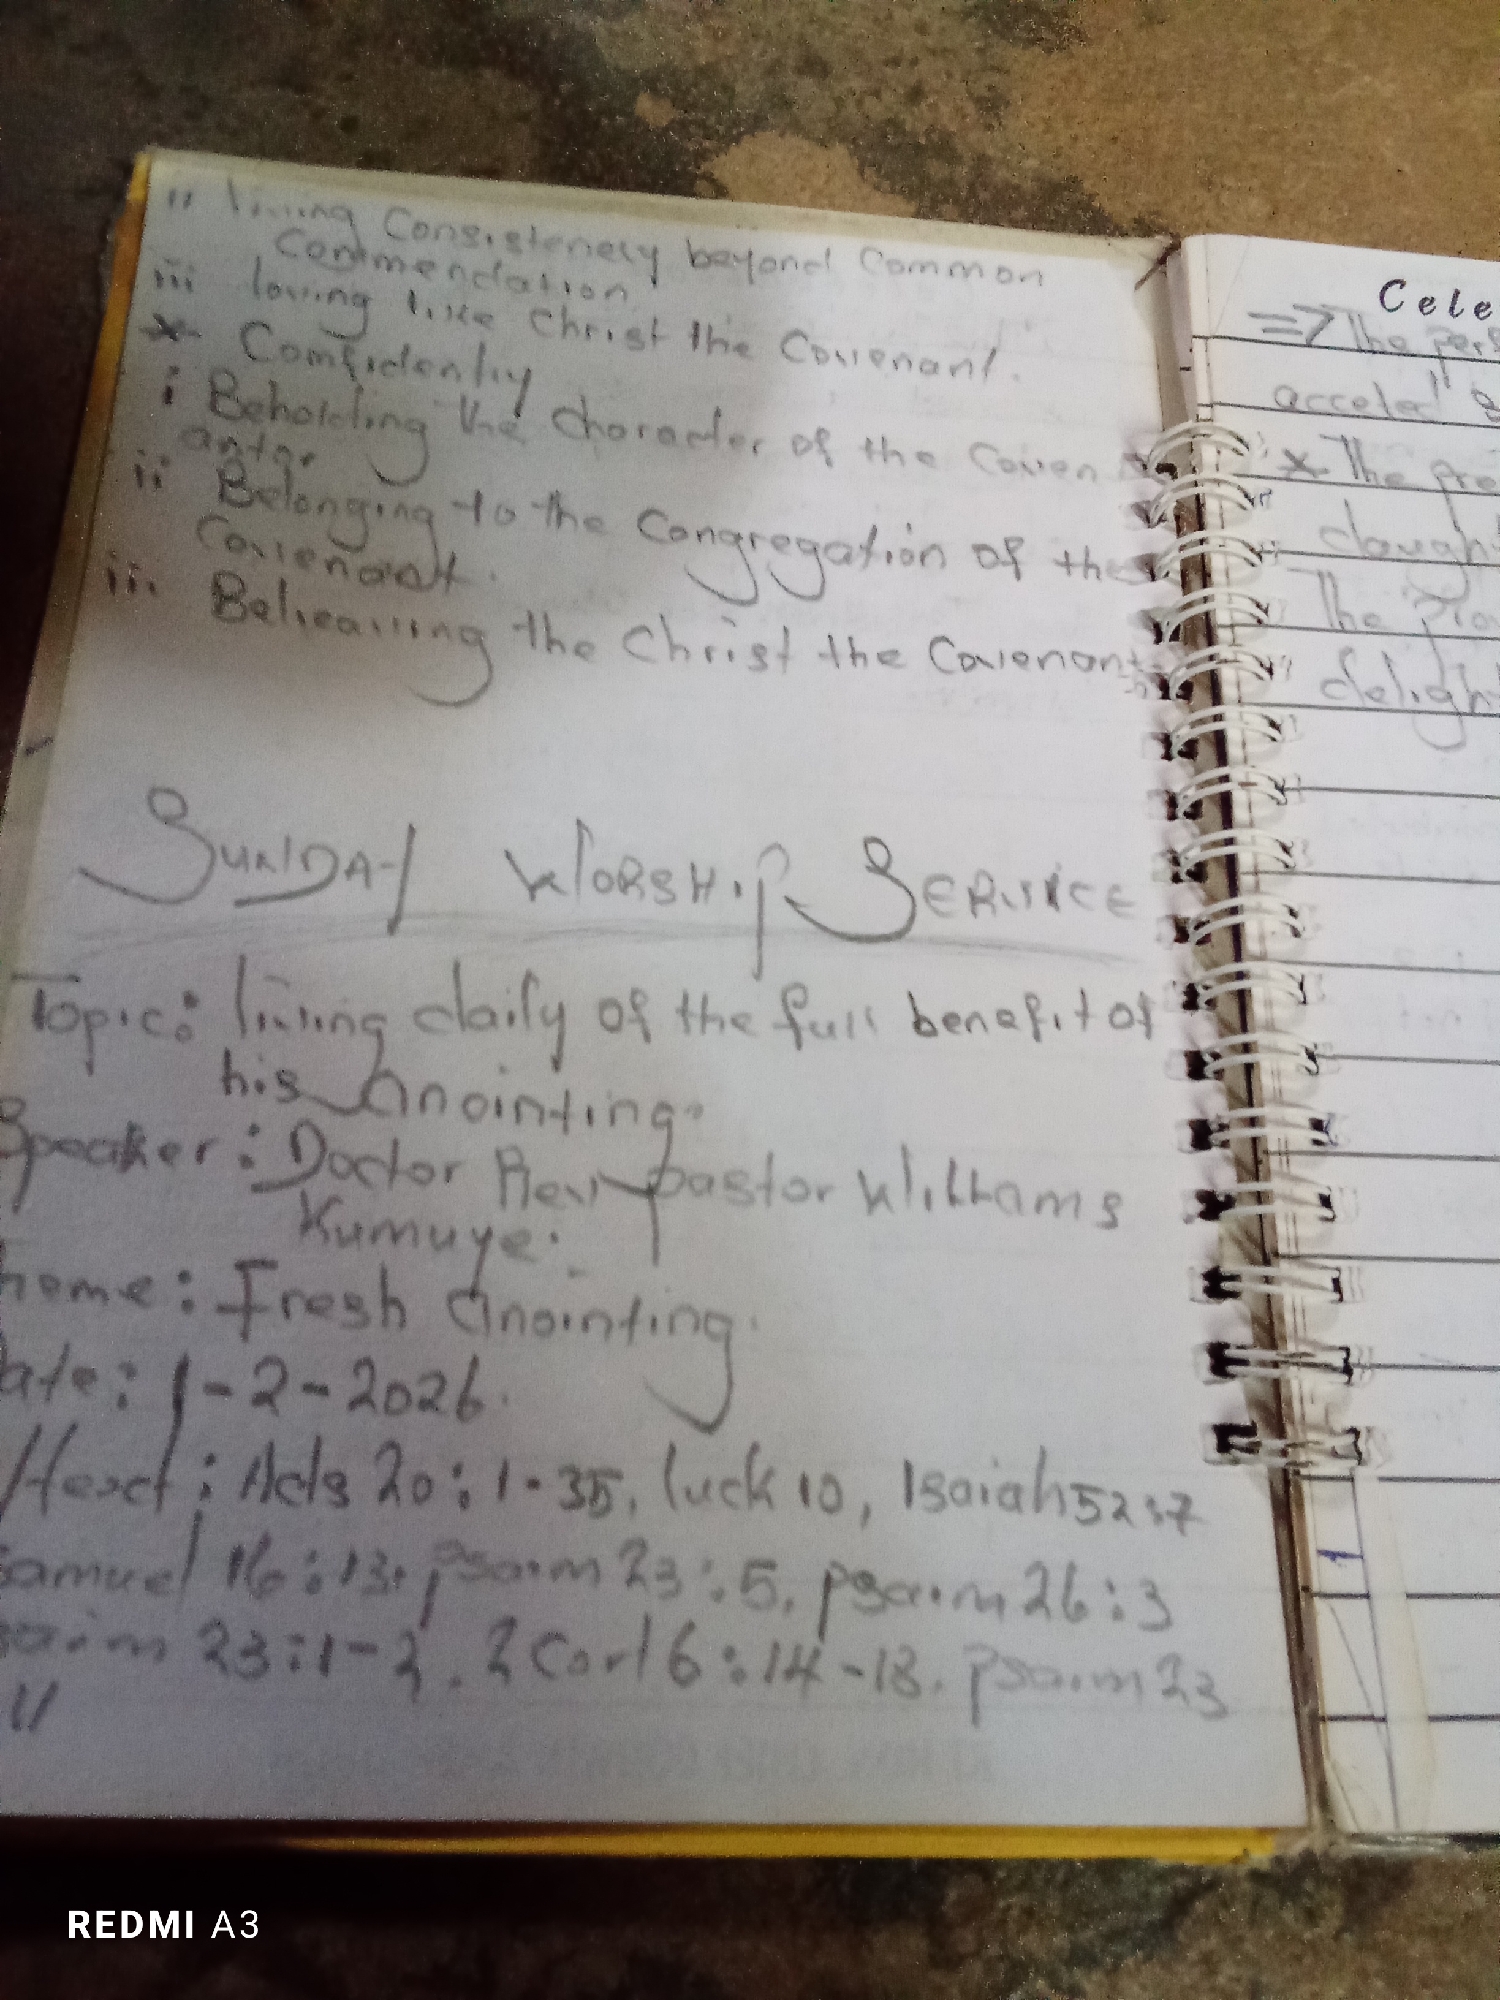 ii living Consistenely beyond Common
Commendation
iii loving like Christ the Covenant.
* Comfidently
i Beholding the Character of the Coven
antor
ii Belonging to the Congregation of the
Covenant.
iii. Belieaving the Christ the Covenant
SUNDAY WORSHIP SERVICE
Topic: living daily of the full benefit of
his Anointing.
Speaker: Doctor Rev pastor Williams
Kumuye.
heme: Fresh Anointing.
ate: 1-2-2026.
/text: Acts 20:1-35, luck 10, Isaiah 52:7
Samuel 16:13. psaim 23:5. psaim 26:3
saim 23:1-2. 2 Cort 6:14-18. psaim 23
Cele
=> The pers
acceled
* The pre
daugh
The pro
deligh
REDMI A3